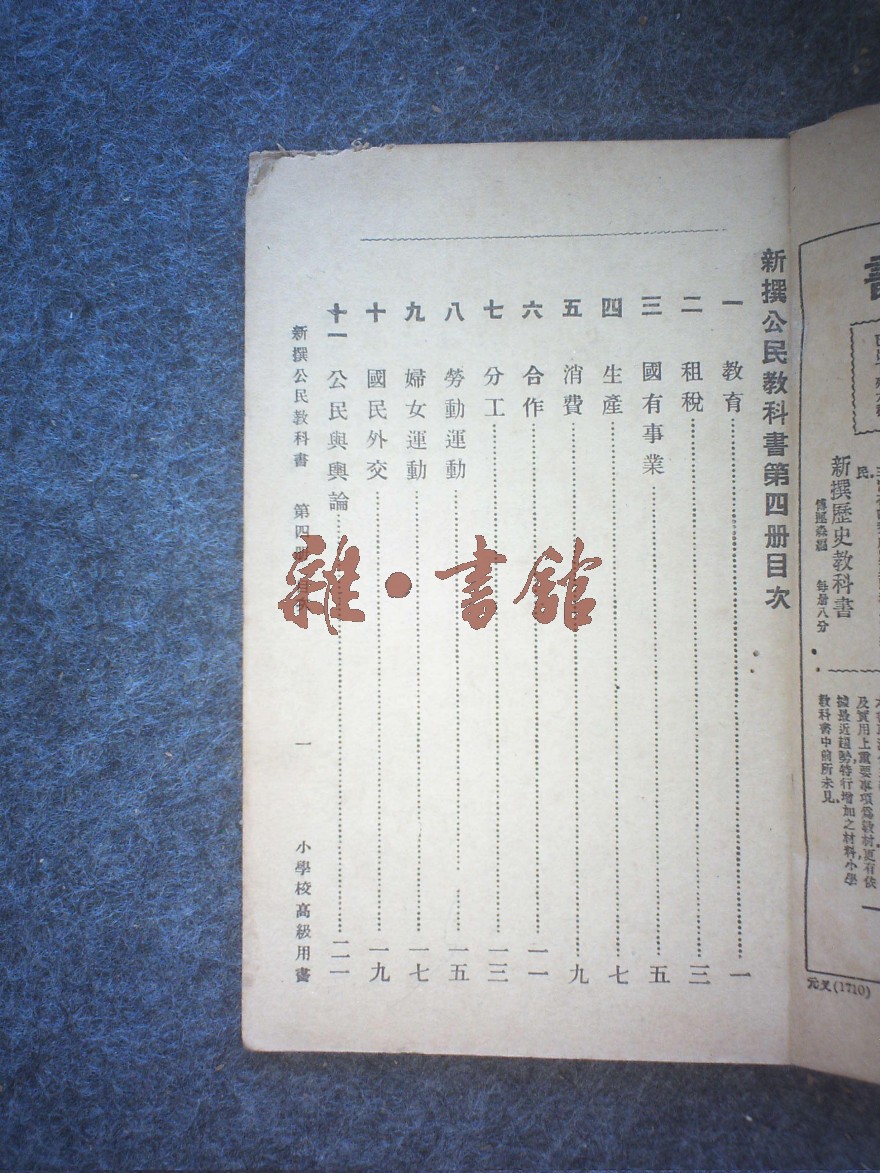 新撰公民教科書第四冊目次
一 教育 一
二 租稅 三
三 國有事業 五
四 生產 七
五 消費 九
六 合作 一一
七 分工 一三
八 勞動運動 一五
九 婦女運動 一七
十 國民外交 一九
十一 公民與輿論 二一
新撰公民教科書 第四冊 目次 一 小學校高級用書
雜·書館
書
民
新撰歷史教科書
每冊八分
及實用上重要事項爲教材更有依
據最近趨勢特行增加之材料小學
教科書中前所未見
(1710)